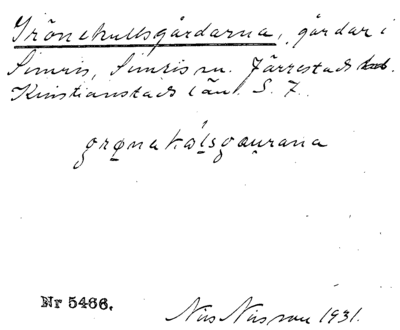 Grönekullsgårdarna, gårdar i
Simris, Simris sn. Järrestads hd.
Kristianstads län. S. 7.
grønakolsgæurana
Nr 5466.
Nils Nilsson 1931.